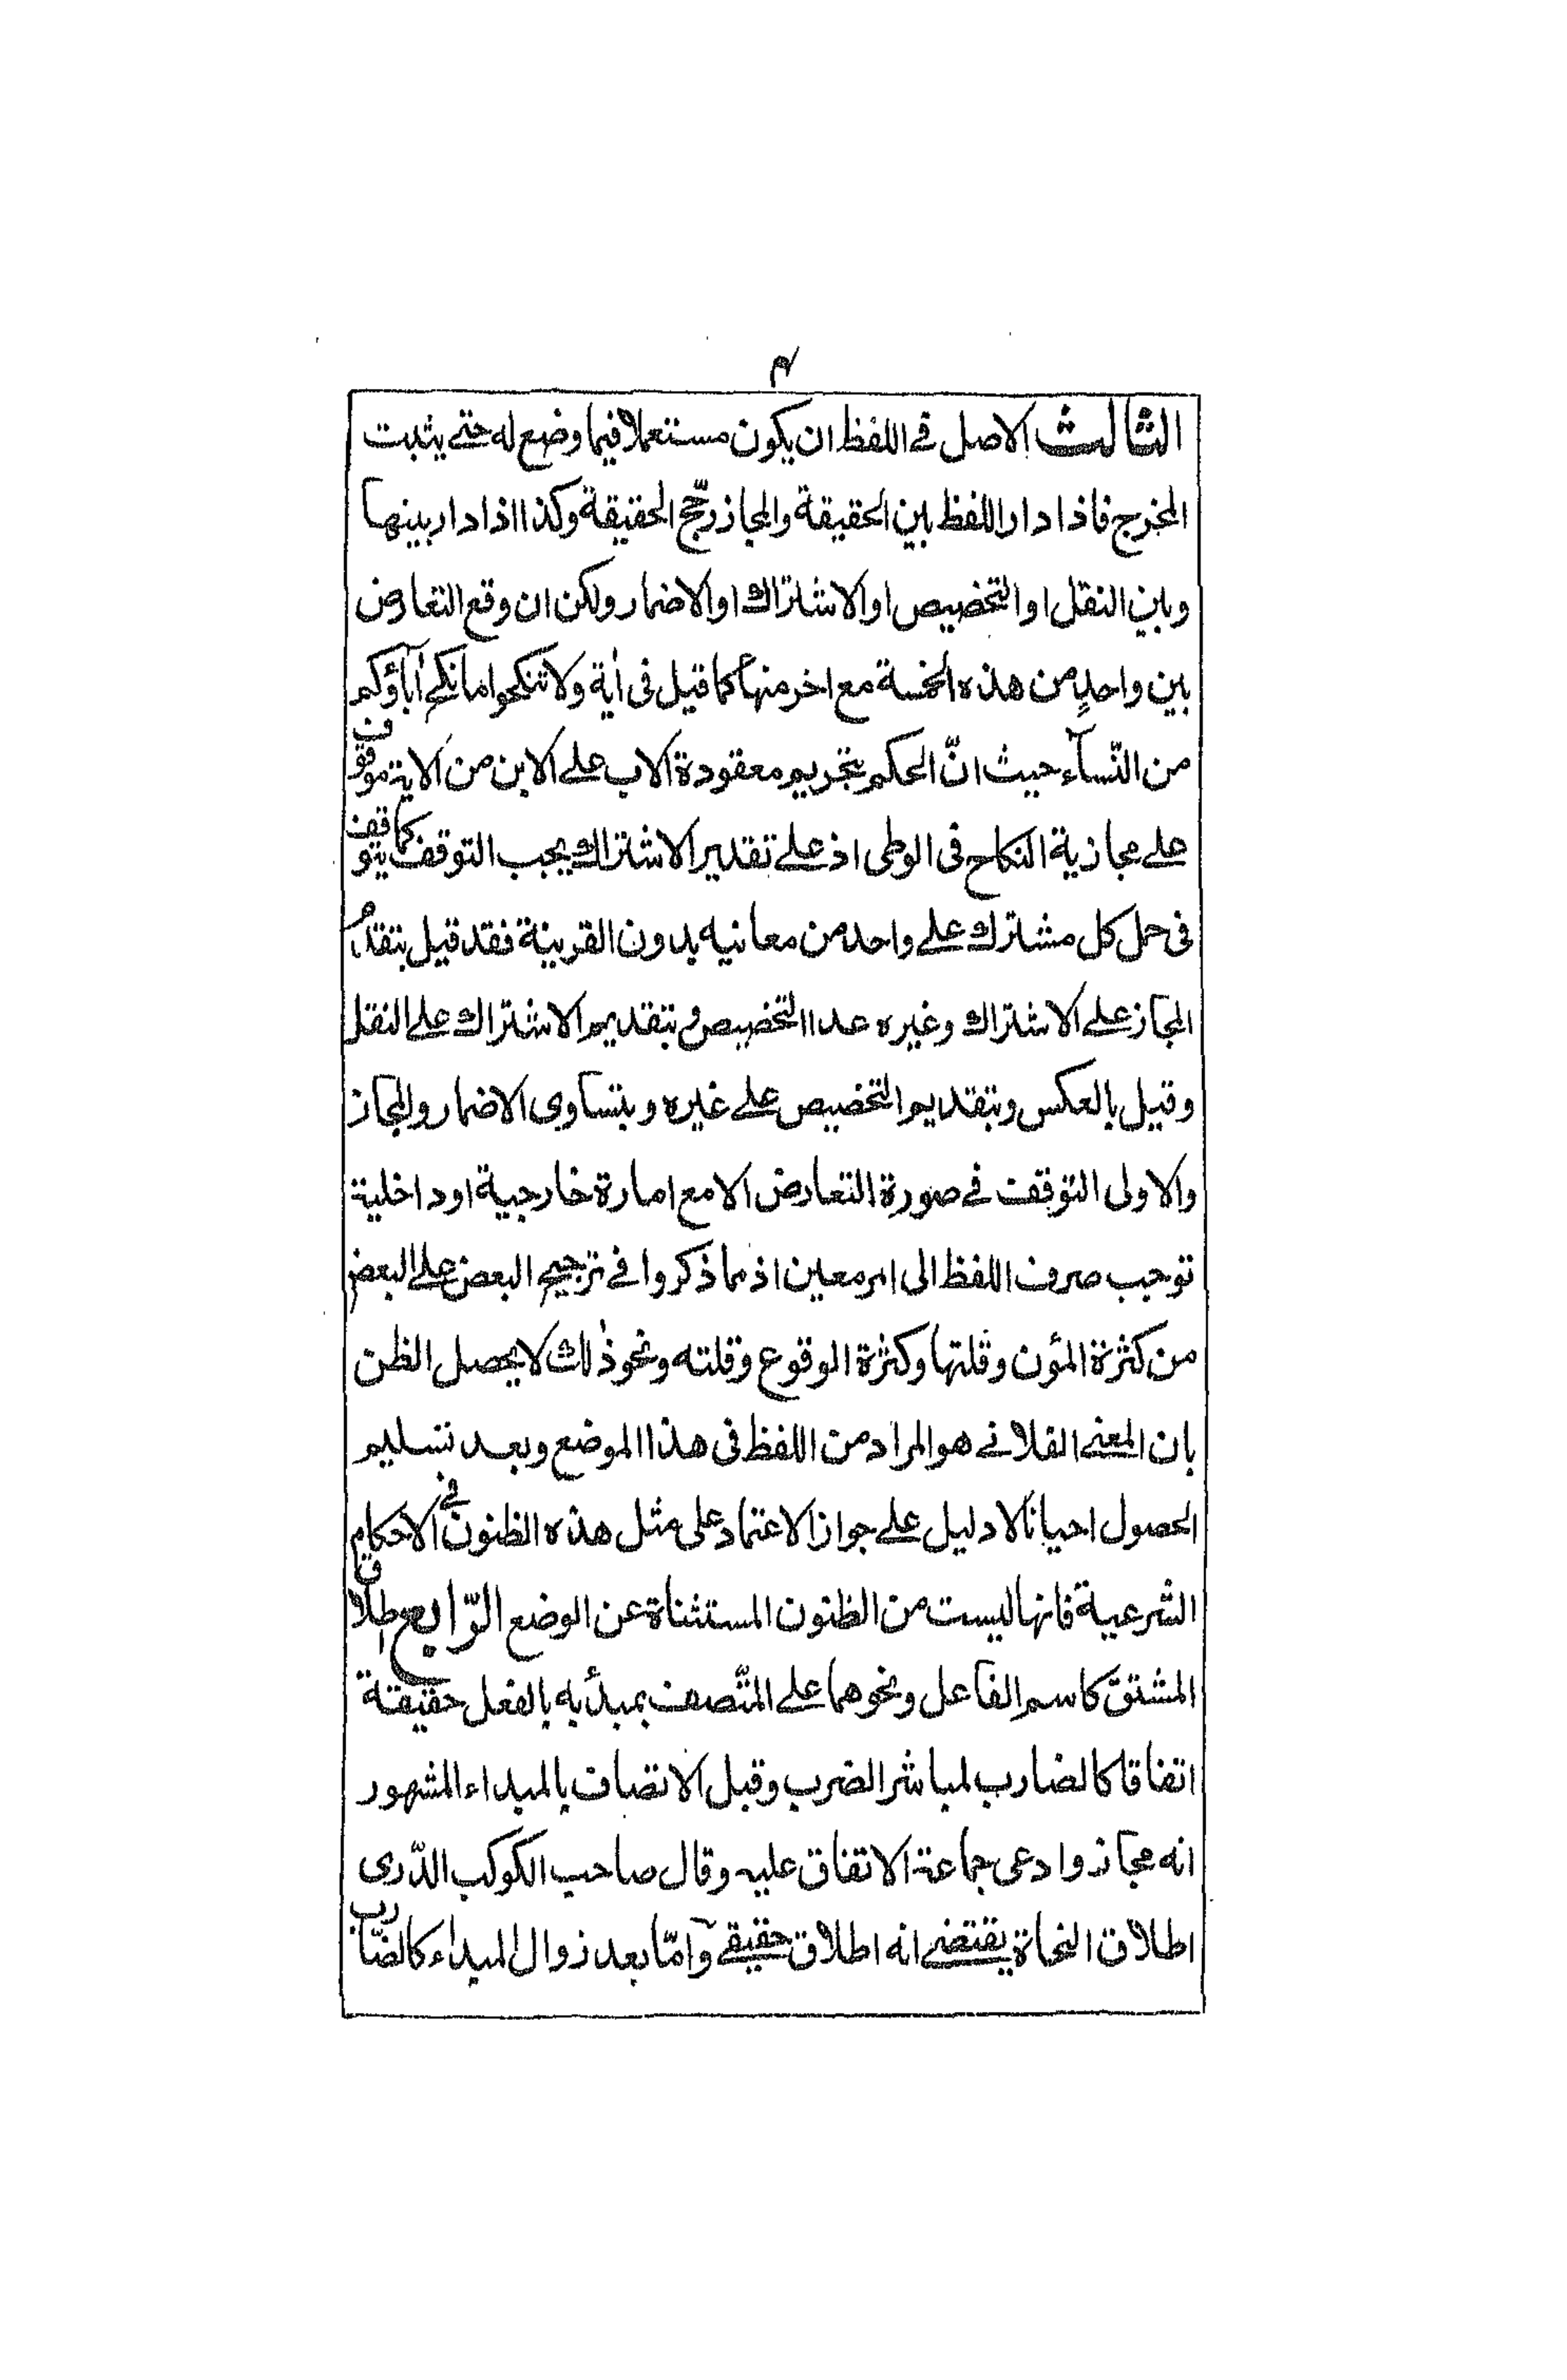 ٣
الثالث الاصل في اللفظ ان يكون مستعملا فيما وضع له حتى يثبت
المخرج فاذا دار اللفظ بين الحقيقة والمجاز رجّح الحقيقة وكذا اذا دار بينها
وبين النقل او التخصيص او الاشتراك او الاضمار ولكن ان وقع التعارض
بين واحدٍ من هذه الخمسة مع اخر منها كما قيل في اٰية ولا تنكحوا ما نكح اٰباؤكم
من النّسآء حيث انّ الحكم بتحريم معقودة الاب على الابن من الاية موقوف
على مجازية النكاح في الوطى اذ على تقدير الاشتراك يجب التوقف كما يتوقف
فى حمل كل مشترك على واحد من معانيه بدون القرينة فقد قيل بتقدم
المجاز على الاشتراك وغيره عدا التخصيص وبتقديم الاشتراك على النقل
وقيل بالعكس وبتقديم التخصيص على غيره وبتساوى الاضمار والمجاز
والاولى التوقف في صورة التعارض الا مع امارة خارجية او داخلية
توجب صرف اللفظ الى امر معين اذ مما ذكروا في ترجيح البعض على البعض
من كثرة المؤن وقلتها وكثرة الوقوع وقلته ونحو ذٰلك لا يحصل الظن
بان المعنى الفلاني هو المراد من اللفظ فى هذا الموضع وبعد تسليم
الحصول احيانا لا دليل على جواز الاعتماد على مثل هذه الظنون في الاحكام
الشرعية فانها ليست من الظنون المستثناة عن الوضع الرّابع اطلاق
المشتقّ كاسم الفاعل ونحوهما على المتّصف بمبدأ به بالفعل حقيقة
اتفاقا كالضارب لمباشر الضرب وقبل الاتصاف بالمبداء المشهور
انه مجاز وادعى جماعة الاتفاق عليه وقال صاحب الكوكب الدّرى
اطلاق النحاة يقتضى انه اطلاق حقيقي وامّا بعد زوال المبداء كالضّارب